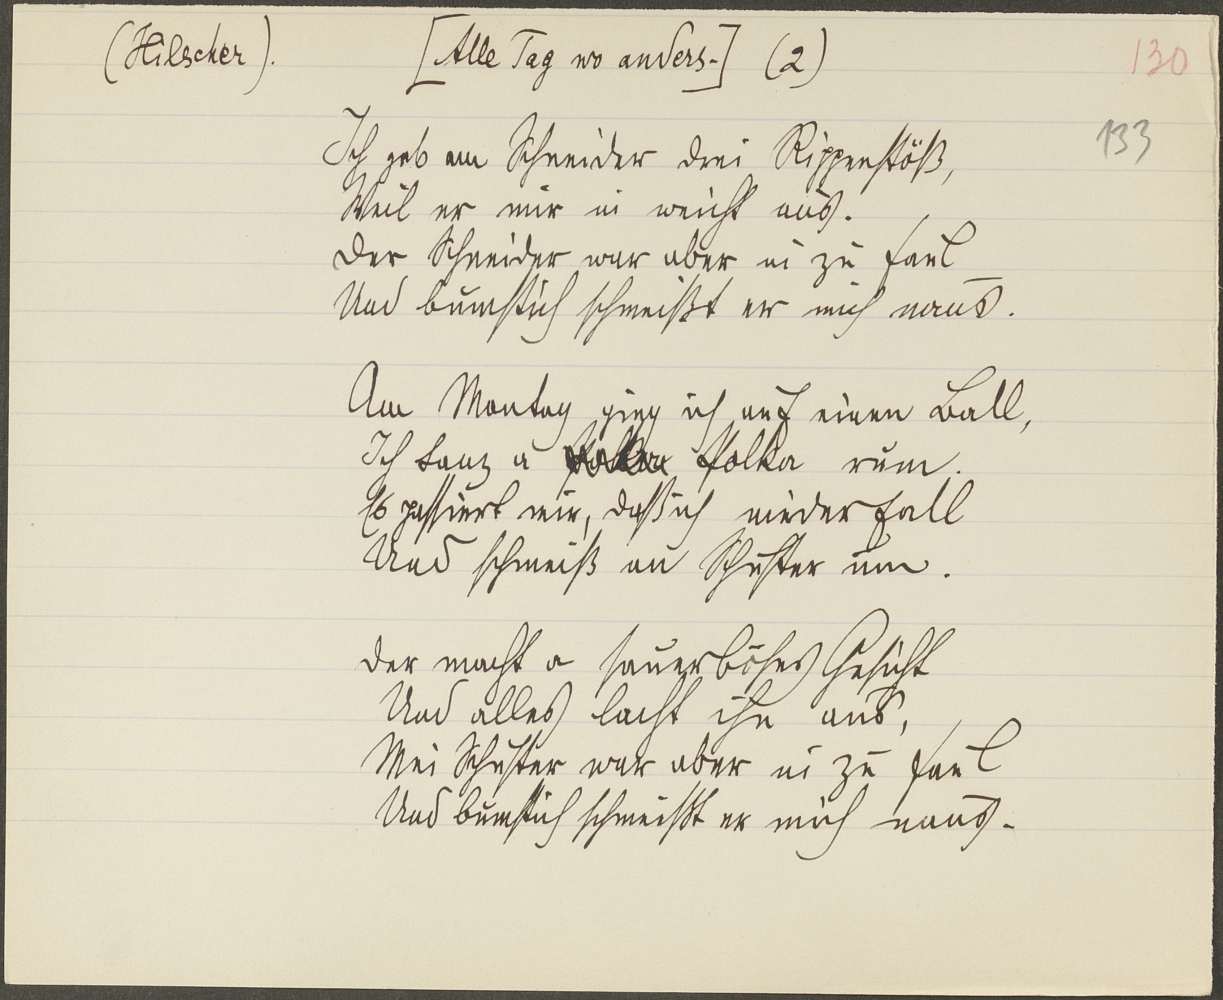 (Hilscher). [Alle Tag wo anders-] (2) 130
133
Ich geb am Schneider drei Rippenstöß,
Weil er mir ni weicht aus.
Der Schneider war aber ni zu faul
Und bumstich schmeißt er mich naus.
Am Montag ging ich auf einen Ball,
Ich tanz a Polka rum.
Es passiert mir, daß ich niederfall
Und schmeiß an Schuster um.
Der macht a sauerböses Gesicht
Und alles lacht ihn aus,
Mei Schuster war aber ni zu faul
Und bumstich schmeißt er mich naus.